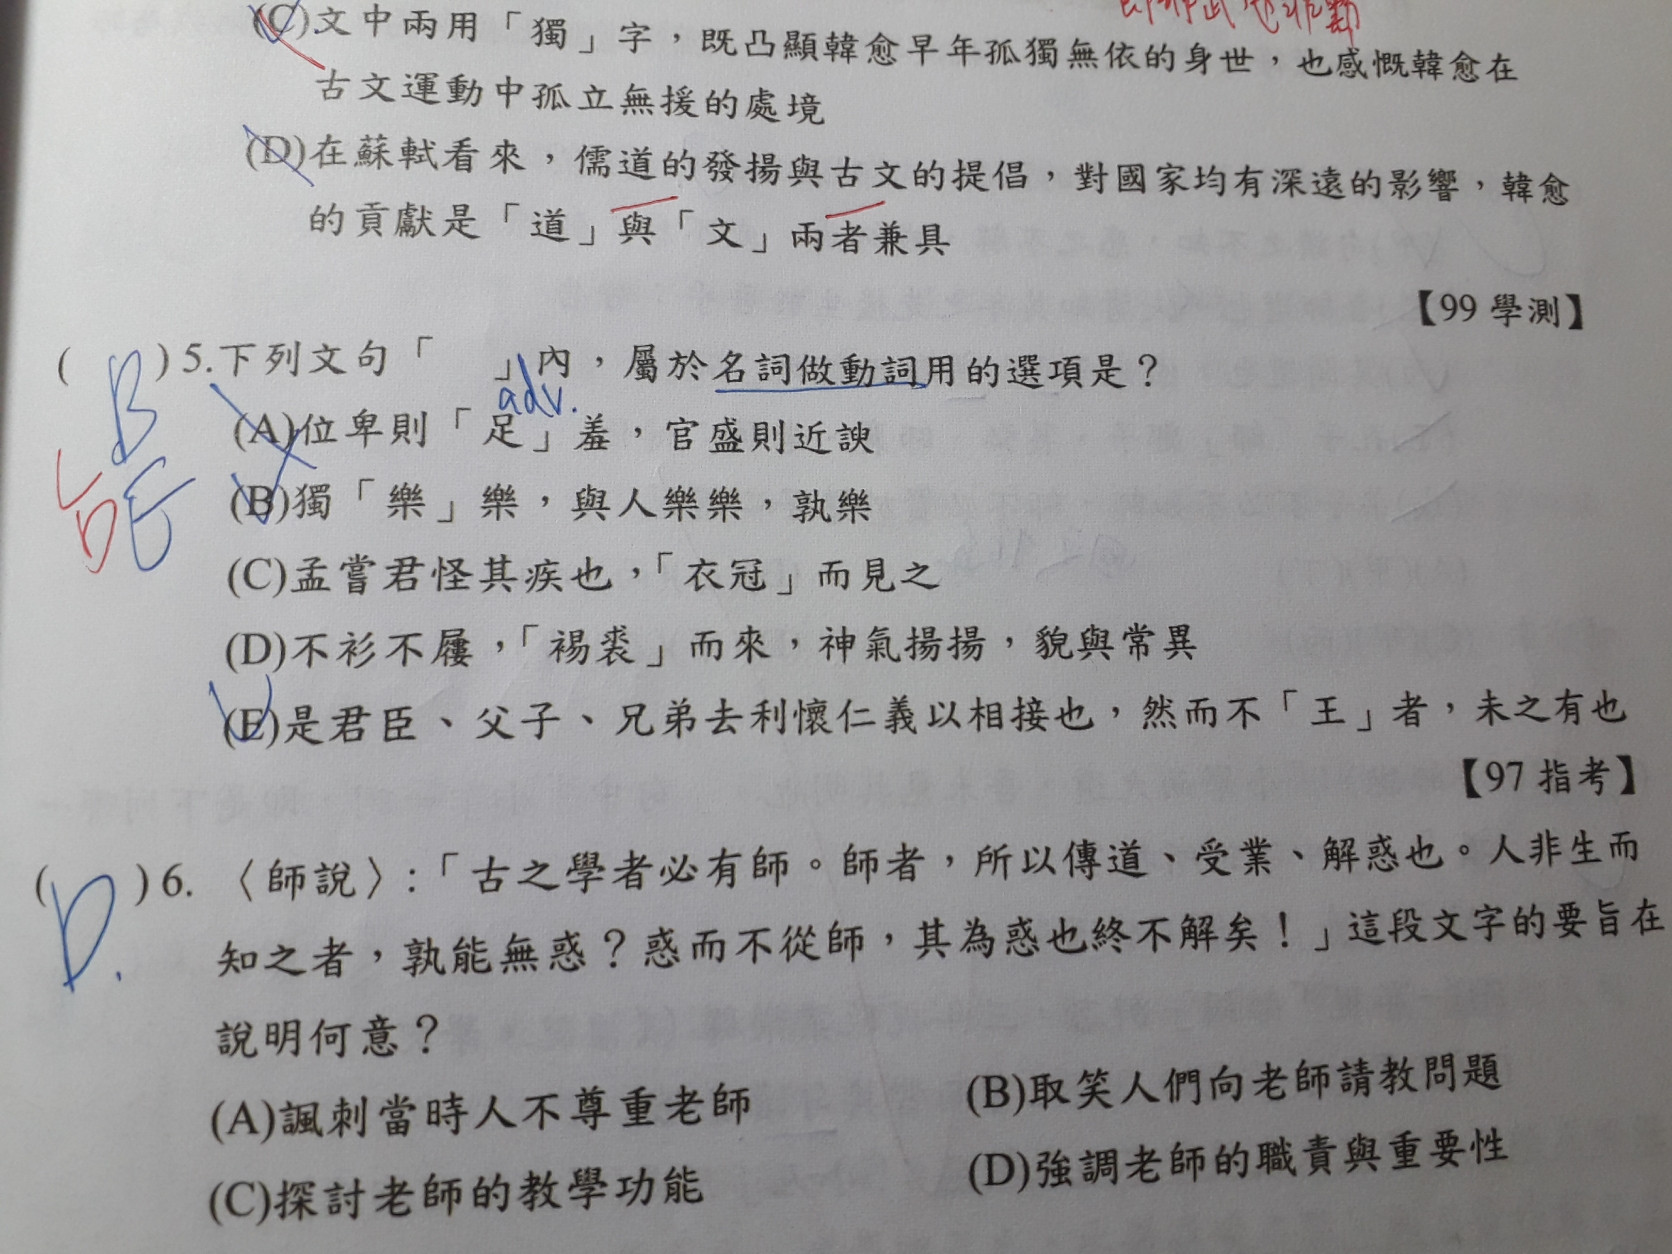 (C)文中兩用「獨」字，既凸顯韓愈早年孤獨無依的身世，也感慨韓愈在
古文運動中孤立無援的處境
(D)在蘇軾看來，儒道的發揚與古文的提倡，對國家均有深遠的影響，韓愈
的貢獻是「道」與「文」兩者兼具
【99 學測】
( B )5.下列文句「　」內，屬於名詞做動詞用的選項是？
adv.
(A)位卑則「足」羞，官盛則近諛
(B)獨「樂」樂，與人樂樂，孰樂
E
(C)孟嘗君怪其疾也，「衣冠」而見之
(D)不衫不屨，「裼裘」而來，神氣揚揚，貌與常異
(E)是君臣、父子、兄弟去利懷仁義以相接也，然而不「王」者，未之有也
【97 指考】
( D. )6. 〈師說〉：「古之學者必有師。師者，所以傳道、受業、解惑也。人非生而
知之者，孰能無惑？惑而不從師，其為惑也終不解矣！」這段文字的要旨在
說明何意？
(A)諷刺當時人不尊重老師 (B)取笑人們向老師請教問題
(C)探討老師的教學功能 (D)強調老師的職責與重要性